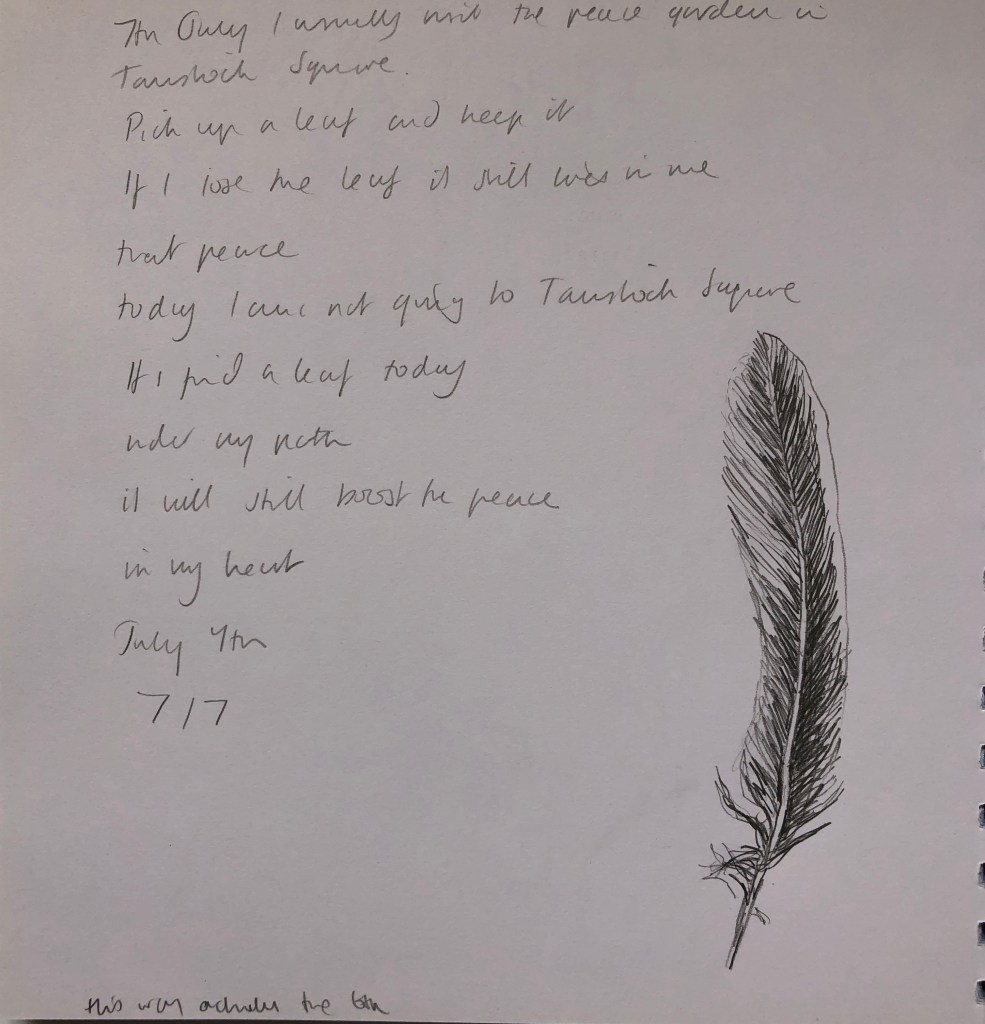 7th July I usually visit the peace garden in
Tavistock Square.
Pick up a leaf and keep it
If I lose the leaf it still lives in me
that peace
today I am not going to Tavistock Square
If I find a leaf today
under my path
it will still boost the peace
in my heart
July 7th
7/7
this was actually the 6th